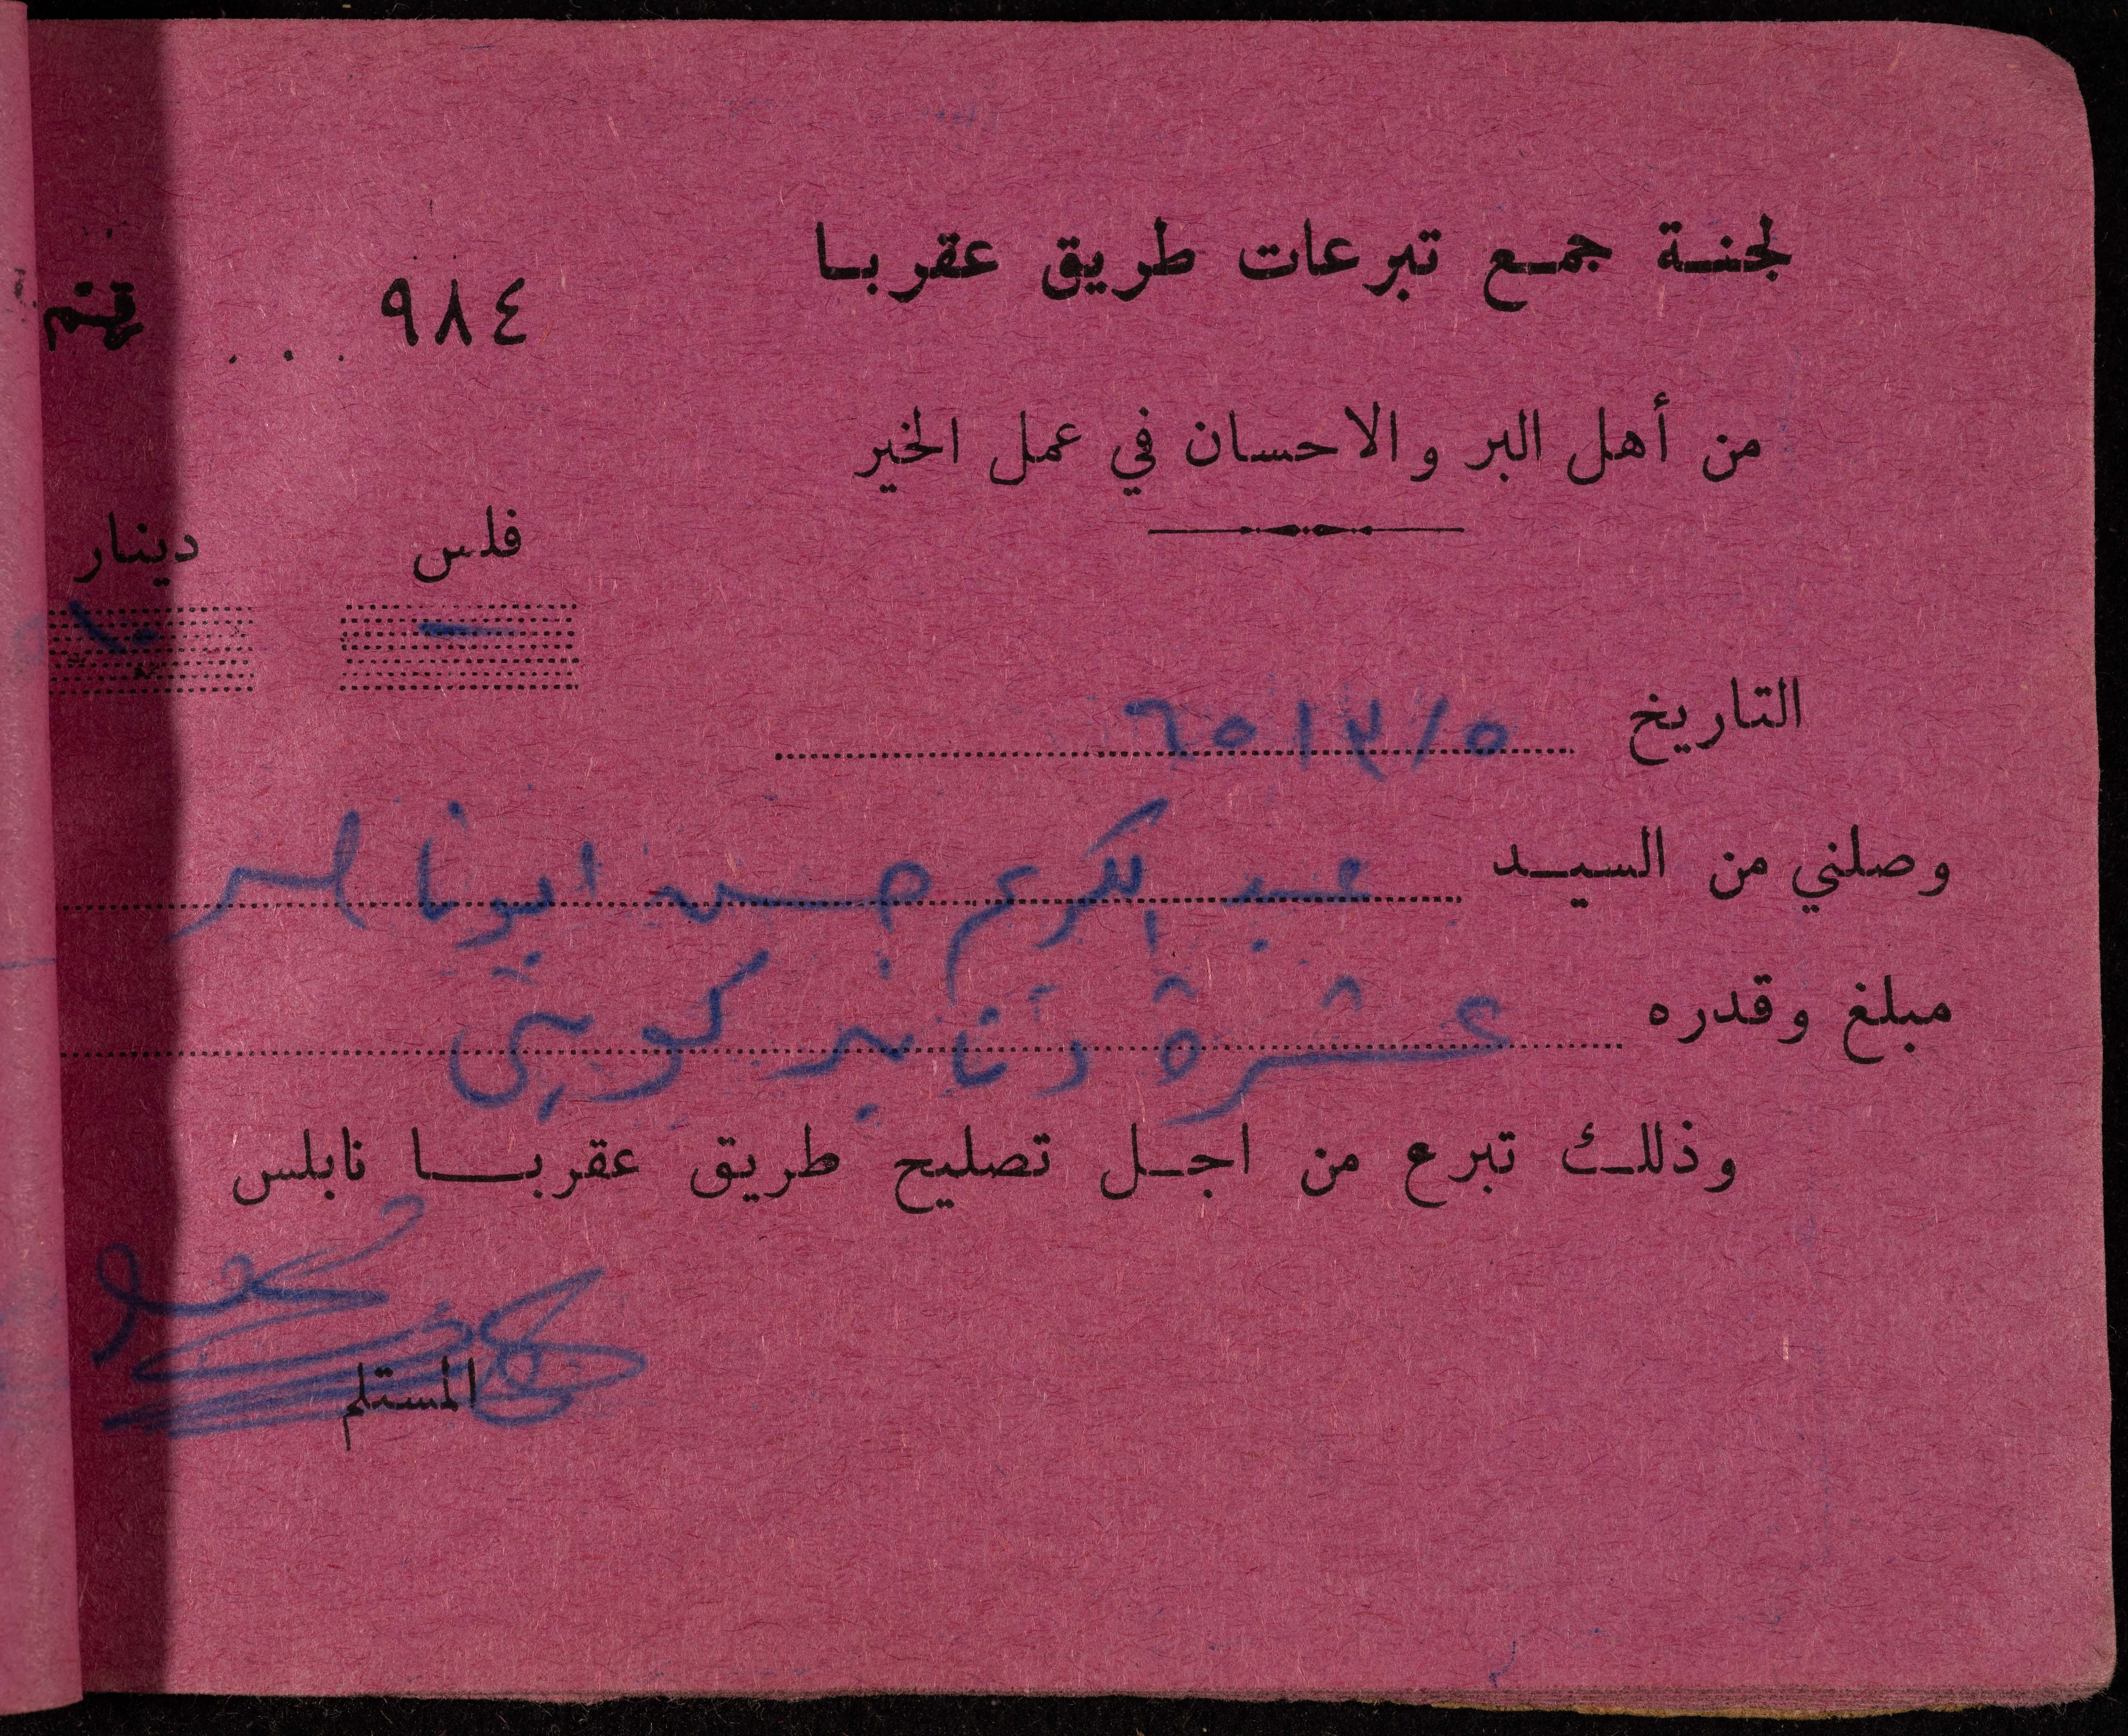 لجنة جمع تبرعات طريق عقربا
٩٨٤
من أهل البر والاحسان في عمل الخير
فلس دينار
- ١٠
التاريخ ٥/٣/٦٥
وصلني من السيد عبد الكريم حسن ابو ناصر
مبلغ وقدره عشرة دنانير كويتي
وذلك تبرع من اجل تصليح طريق عقربا نابلس
المستلم